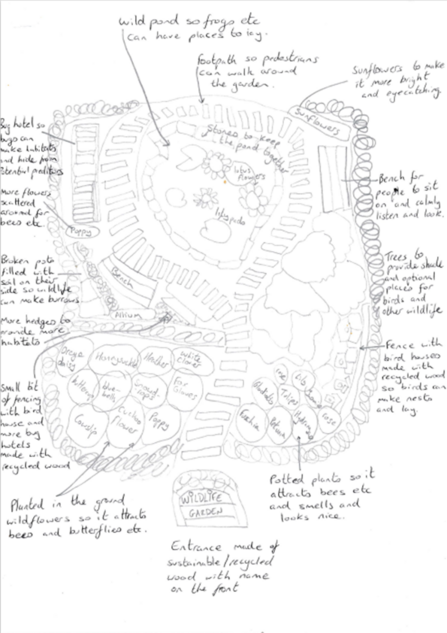 Wild pond so frogs etc
can have places to lay.
Footpath so pedestrians
can walk around
the garden.
Sunflowers to make
it more bright
and eyecatching.
Sunflowers
Stones to keep
the pond together
lotus flowers
lilypads
Bug hotel so
bugs can
make habitats
and hide from
potential preditors
More flowers
scattered
around for
bees etc.
Poppy
Broken pots
filled with
soil on their
side so wildlife
can make burrows.
Bench
Allium
More hedges to
provide more
habitats
Small bit
of fencing
with bird
house and
more bug
hotels
made with
recycled wood
Bench for
people to sit
on and calmly
listen and look.
Trees to
provide shade
and optional
places for
birds and
other wildlife
Fence with
bird houses
made with
recycled wood
so birds can
make nests
and lay.
Oxeye daisy
Honeysuckle
White clover
Blue-bells
Cowslip
Poppy
Iris
Lily
Tulips
Rose
Potted plants so it
attracts bees etc
and smells and
looks nice.
Planted in the ground
wildflowers so it attracts
bees and butterflies etc.
WILDLIFE
GARDEN
Entrance made of
sustainable/recycled
wood with name
on the front